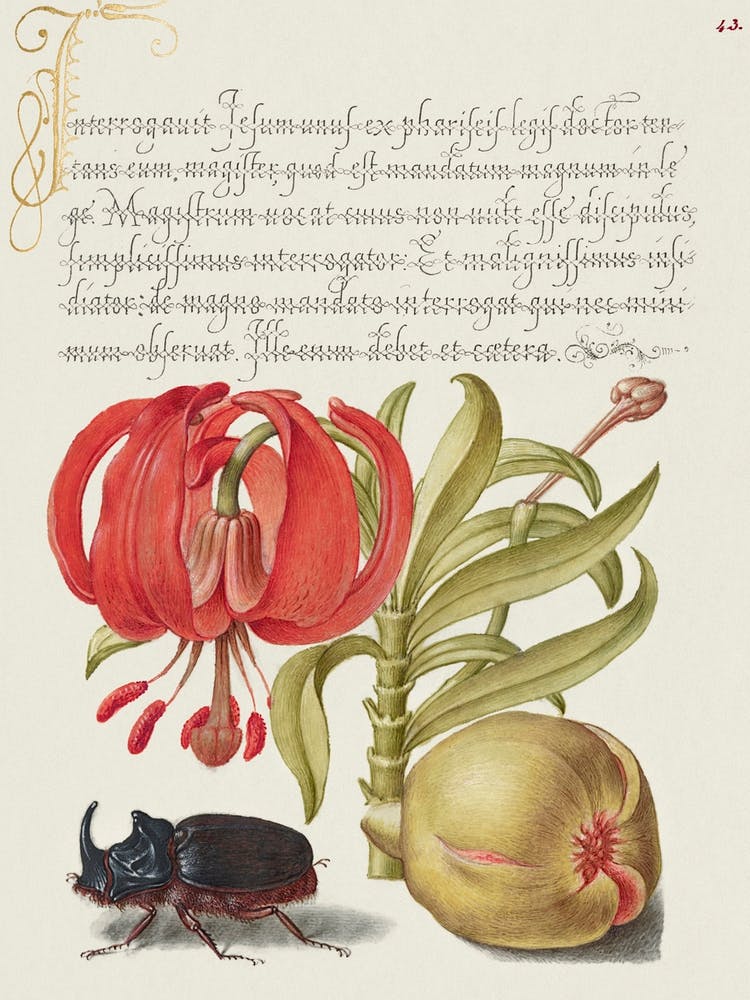 43.
Interrogauit Jesum unus ex phariseis legis doctor ten-
tans eum, magister, quod est mandatum magnum in le
ge. Magistrum uocat cuius non uult esse discipulus,
simplicissimus interrogator. Et malignissimus insi-
diator: de magno mandato interrogat qui nec mini-
mum obseruat. Ille enim debet et cætera.